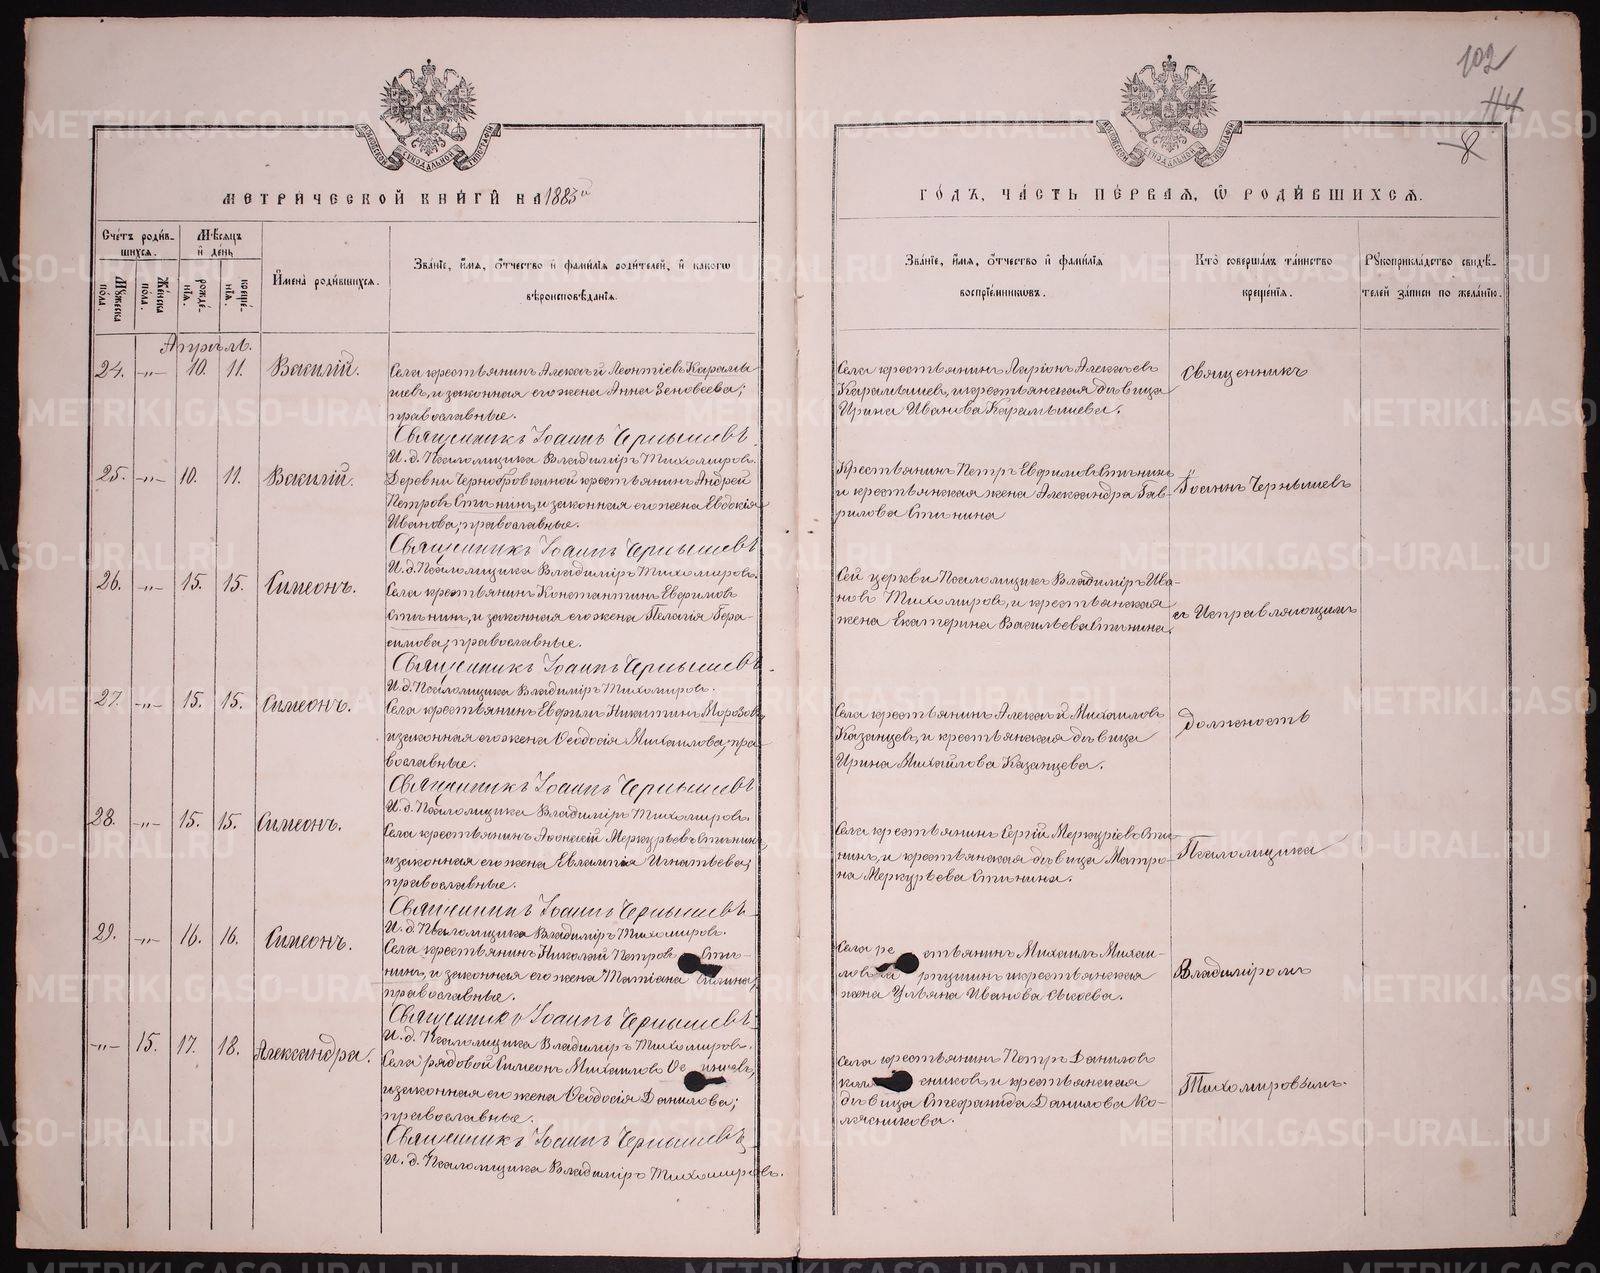 102
114
8
МЕТРИЧЕСКОЙ КНИГИ НА 1883й
ГОДЪ, ЧАСТЬ ПЕРВАЯ, Ѡ РОДИВШИХСѦ.
Счетъ родив-
шихсѧ.
Мѣсѧцъ
и день
Мужеска пола.
Женска пола.
рожде-
нїѧ.
креще-
нїѧ.
Имена родившихсѧ.
Званїе, имѧ, отчество и фамилїѧ родителей, и какогѡ
вѣроисповѣданїѧ.
Званїе, имѧ, отчество и фамилїѧ
воспрїемникѡвъ.
Кто совершалъ таинство
крещенїѧ.
Рукоприкладство свидѣ-
телей записи по желанїю.
Апрѣль.
24. -„- 10. 11. Василій.
Села крестьянинъ Алексѣй Леонтіевъ Карамы
шевъ, и законная его жена Анна Зеновеева;
православные.
Священникъ Іоаннъ Чернышевъ
И. д. Псаломщика Владиміръ Тихомировъ.
Села крестьянинъ Ларіонъ Алексѣевъ
Карамышевъ, и крестьянская дѣвица
Ирина Иванова Карамышева.
Священникъ
25. -„- 10. 11. Василій.
Деревни Чернобровкиной крестьянинъ Андрей
Петровъ Стынинъ, и законная его жена Евдокія
Иванова; православные.
Священникъ Іоаннъ Чернышевъ
И. д. Псаломщика Владиміръ Тихомировъ.
Крестьянинъ Петръ Евфимовъ Стынинъ
и крестьянская жена Александра Гав-
рилова Стынина
Іоаннъ Чернышевъ
26. -„- 15. 15. Симеонъ.
Села крестьянинъ Константинъ Евфимовъ
Стынинъ, и законная его жена Пелагія Гера-
симова; православные.
Священникъ Іоаннъ Чернышевъ
И. д. Псаломщика Владиміръ Тихомировъ.
Сей церкви Псаломщикъ Владиміръ Ива-
новъ Тихомировъ, и крестьянская
жена Екатерина Васильева Стынина.
съ Исправляющимъ
27. -„- 15. 15. Симеонъ.
Села крестьянинъ Евфимъ Никитинъ Морозовъ,
и законная его жена Ѳеодосія Михаилова; пра
вославные.
Священникъ Іоаннъ Чернышевъ
И. д. Псаломщика Владиміръ Тихомировъ.
Села крестьянинъ Алексѣй Михаиловъ
Казанцевъ, и крестьянская дѣвица
Ирина Михайлова Казанцева.
должность
28. -„- 15. 15. Симеонъ.
Села крестьянинъ Аѳонасій Меркурьевъ Стынинъ,
и законная его жена Евлампія Игнатьева;
православные.
Священникъ Іоаннъ Чернышевъ
И. д. Псаломщика Владиміръ Тихомировъ.
Села крестьянинъ Сергій Меркуріевъ Сты
нинъ, и крестьянская дѣвица Матро-
на Меркурьева Стынина.
Псаломщика
29. -„- 16. 16. Симеонъ.
Села крестьянинъ Николай Петровъ Сты-
нинъ, и законная его жена Татіана
православные.
Священникъ Іоаннъ Чернышевъ
И. д. Псаломщика Владиміръ Тихомировъ.
Села крестьянинъ Михаилъ Михаи-
ловъ и крестьянская
жена Ульяна Иванова Сысоева.
Владиміромъ
-„- 15. 17. 18. Александра.
Села рядовой Симеонъ Михаиловъ
и законная его жена Ѳеодосія Данилова;
православные.
Священникъ Іоаннъ Чернышевъ
И. д. Псаломщика Владиміръ Тихомировъ.
Села крестьянинъ Петръ Даниловъ
и крестьянская
дѣвица Стефанида Данилова Ко-
лясникова.
Тихомировымъ.